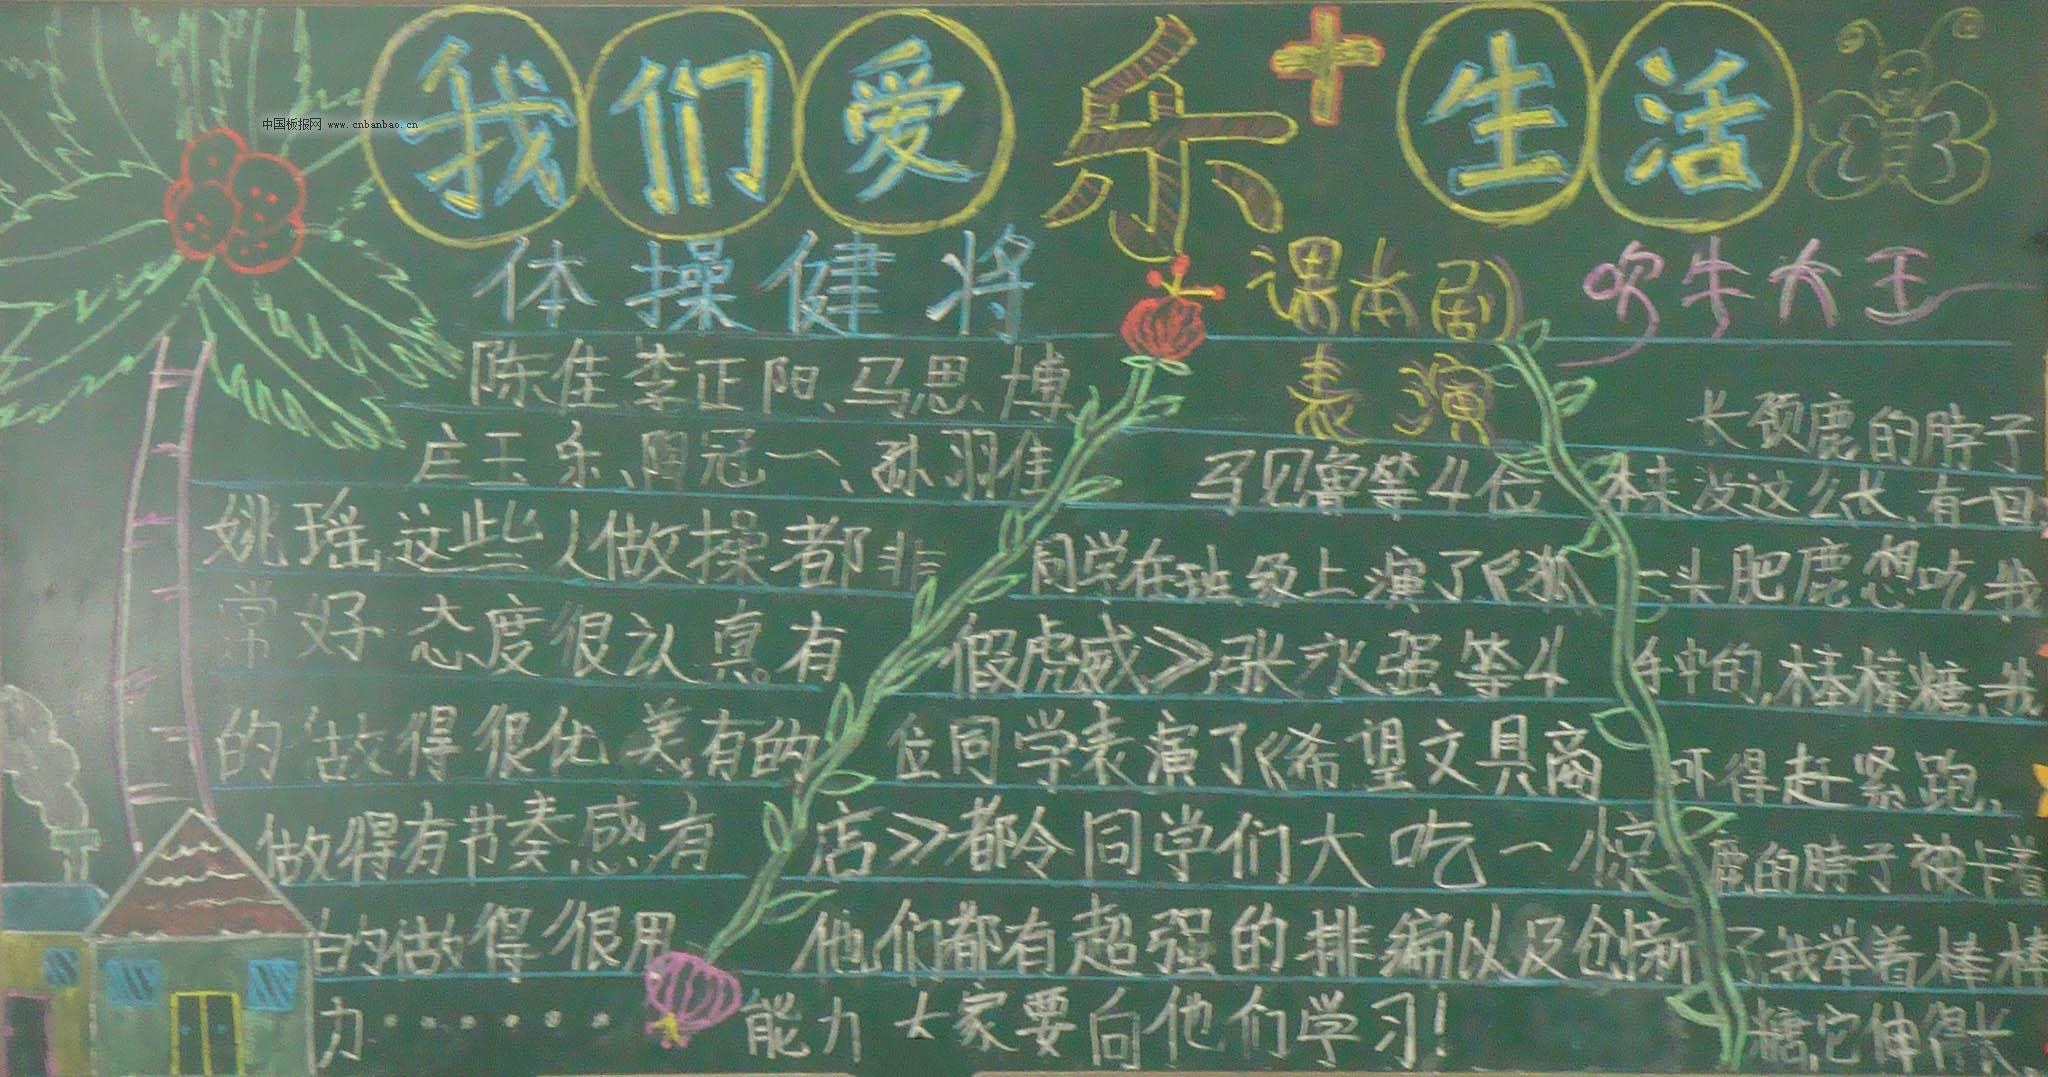 中国板报网 www.cnbanbao.cn
我们爱乐+生活
体操健将
陈佳、李正阳、马思博、
庄玉乐、陶冠一、孙羽佳
姚瑶,这些人做操都非
常好,态度很认真。有
的做得很优美,有的
做得有节奏感,有
的做得很用
力······
课本剧
表演
马见鲁等4位
同学在班级上演了《狐
假虎威》张永强等4
位同学表演了《希望文具商
店》都令同学们大吃一惊
他们都有超强的排编以及创新
能力大家要向他们学习!
吹牛大王
长颈鹿的脖子
本来没这么长,有一回,
一头肥鹿想吃我
手中的,棒棒糖,我
吓得赶紧跑,
鹿的脖子被卡着
了,我举着棒棒
糖,它伸得长